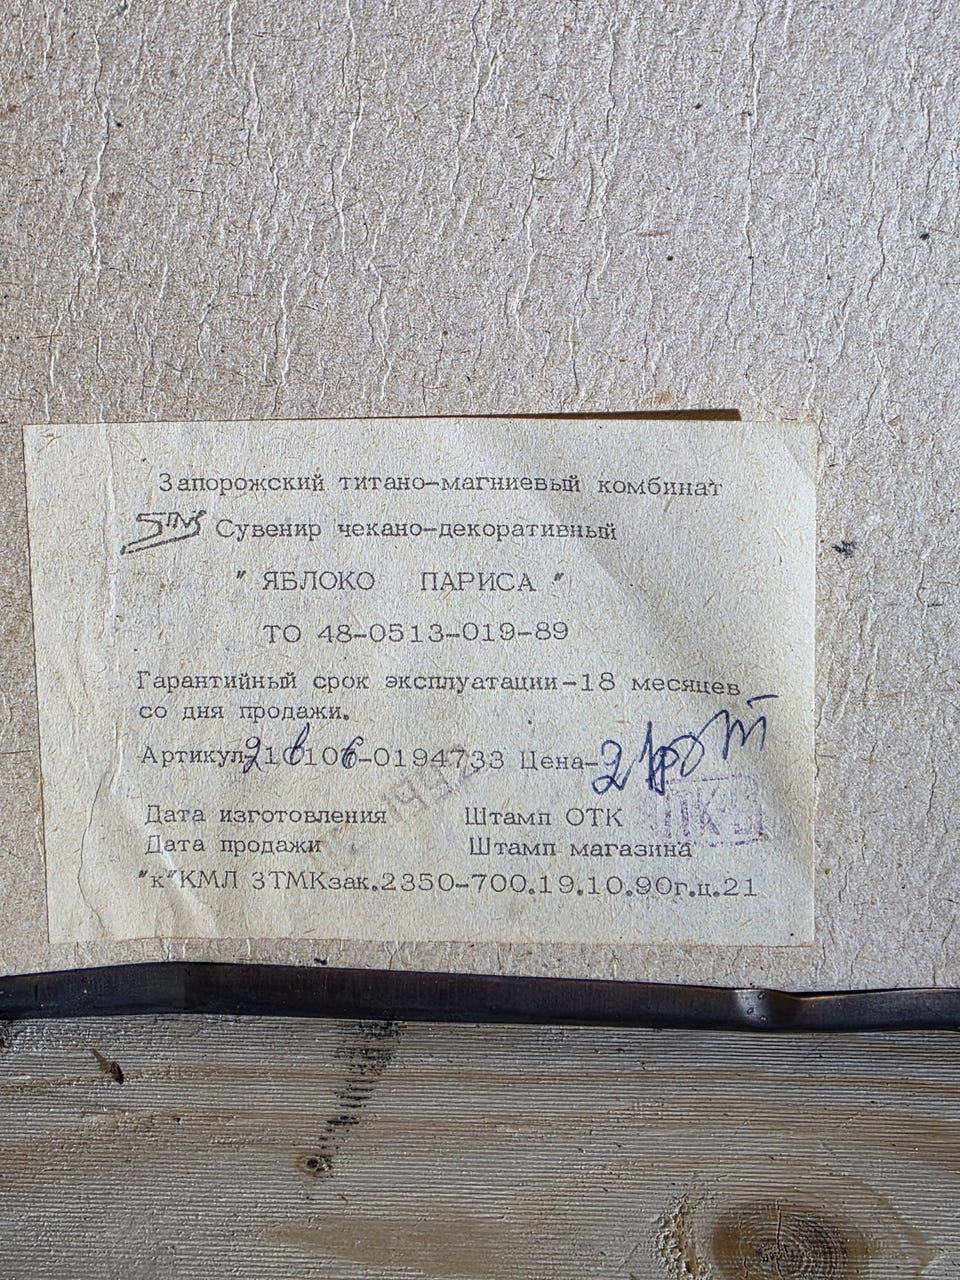 Запорожский титано-магниевый комбинат
Сувенир чекано-декоративный
" ЯБЛОКО ПАРИСА "
ТО 48-0513-019-89
Гарантийный срок эксплуатации-18 месяцев
со дня продажи.
Артикул-0194733 Цена-
Дата изготовления Штамп ОТК
Дата продажи Штамп магазина
"к"КМЛ ЗТМКзак.2350-700.19.10.90г.ц.21